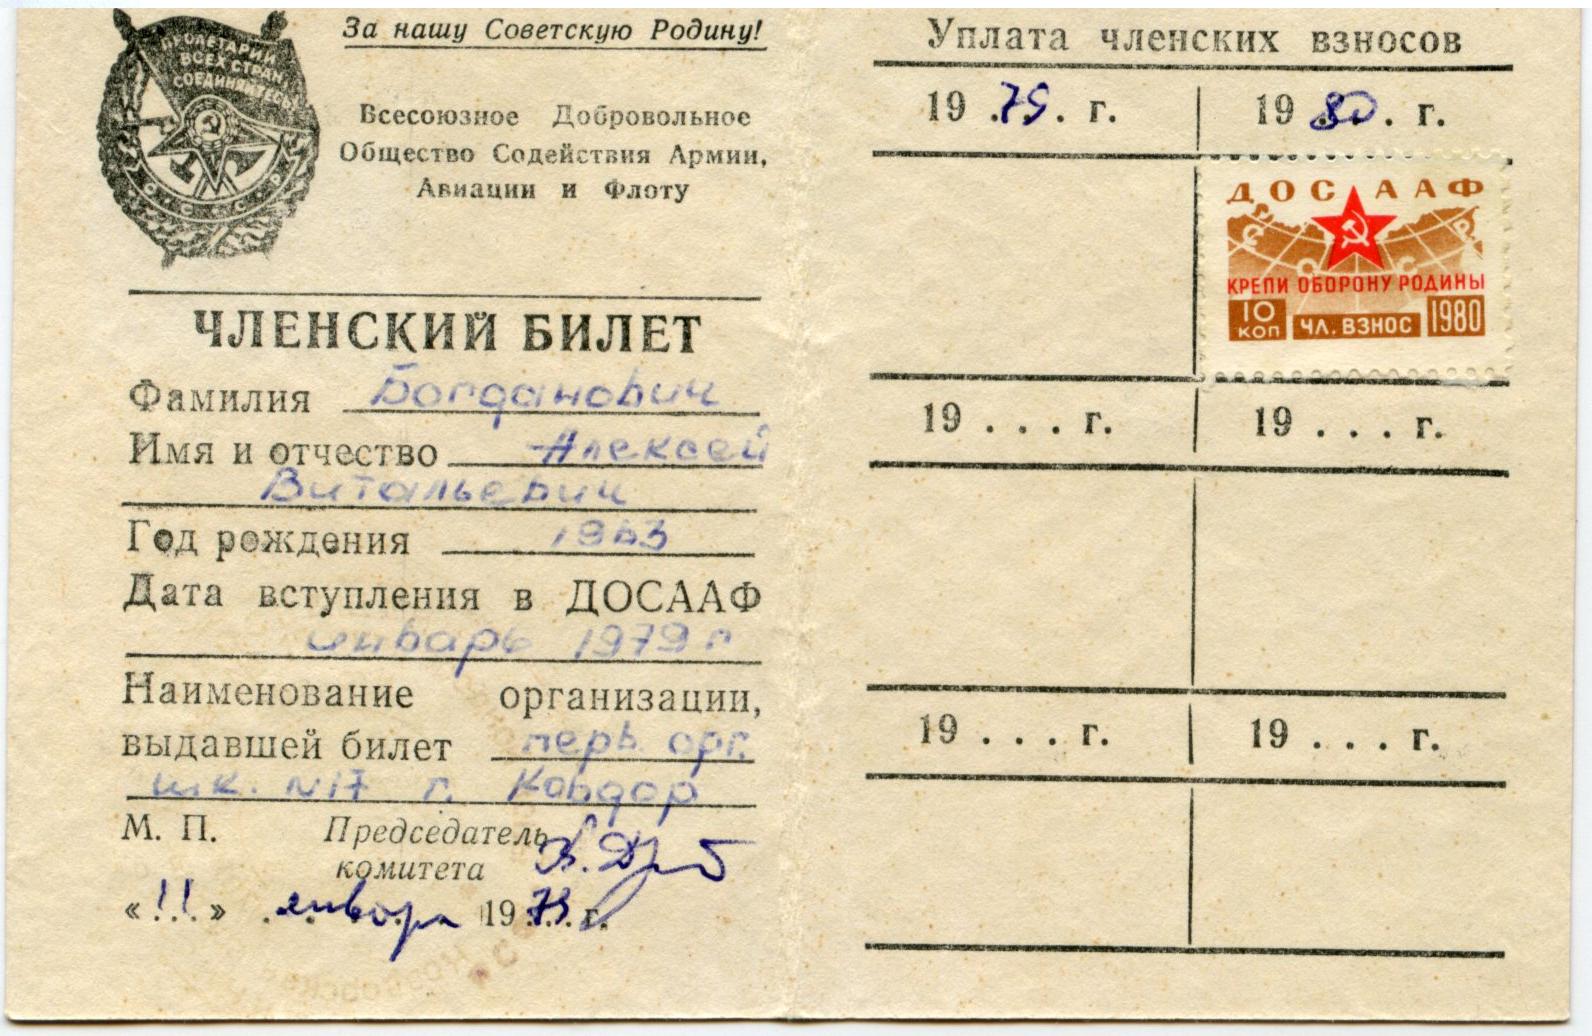 ПРОЛЕТАРИИ
ВСЕХ СТРАН,
СОЕДИНЯЙТЕСЬ!
СССР
За нашу Советскую Родину!
Всесоюзное Добровольное
Общество Содействия Армии,
Авиации и Флоту
ЧЛЕНСКИЙ БИЛЕТ
Фамилия Богданович
Имя и отчество Алексей
Витальевич
Год рождения 1963
Дата вступления в ДОСААФ
январь 1979 г
Наименование организации,
выдавшей билет перв. орг.
шк. N17 г. Ковдор
М. П. Председатель
комитета
«11» января 1979 г.
Уплата членских взносов
19 79 г. 19 80 г.
ДОСААФ
СССР
КРЕПИ ОБОРОНУ РОДИНЫ
10 КОП ЧЛ. ВЗНОС 1980
19 . . . г. 19 . . . г.
19 . . . г. 19 . . . г.